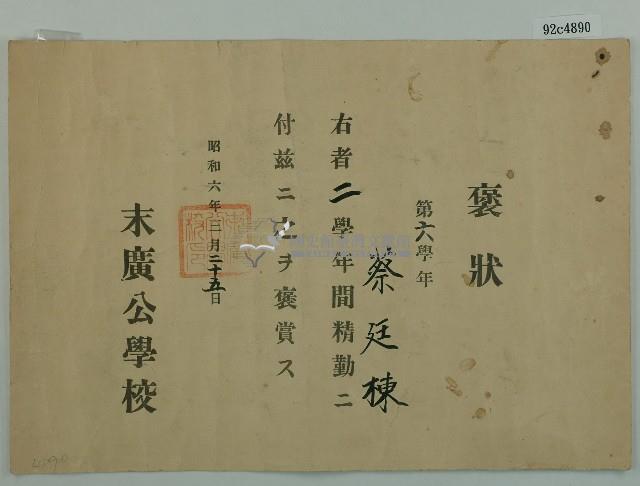 92c4890
褒狀
第六學年
蔡廷棟
右者二學年間精勤ニ
付茲ニ之ヲ褒賞ス
昭和六年三月二十五日
末廣公學校
4890